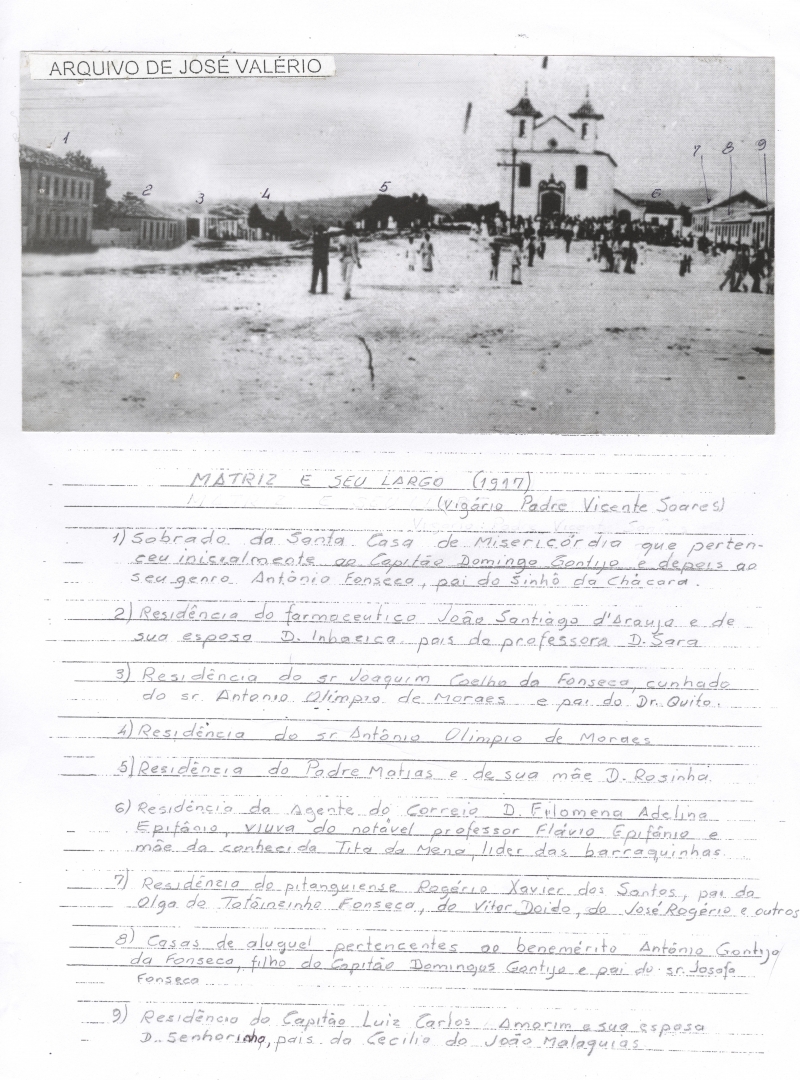 ARQUIVO DE JOSÉ VALÉRIO
1 2 3 4 5 6 7 8 9
MATRIZ E SEU LARGO (1917)
(Vigário Padre Vicente Soares)
1) Sobrado da Santa Casa de Misericórdia que perten-
ceu inicialmente ao Capitão Domingo Gontijo e depois ao
seu genro Antônio Fonseca, pai do Sinhô da Chácara.
2) Residência do farmaceutico João Santiago d'Araujo e de
sua esposa D. Inhaeica pais da professora D. Sara
3) Residência do sr Joaquim Coelho da Fonseca, cunhado
do sr. Antonio Olimpio de Moraes e pai do Dr. Quito.
4) Residência do sr Antônio Olimpio de Moraes
5) Residência do Padre Matias e de sua mãe D. Rosinha.
6) Residência da Agente do Correio D. Filomena Adelina
Epifânio, viuva do notável professor Flávio Epifânio e
mãe da conhecida Tita da Mena, lider das barraquinhas
7) Residência do pitanguiense Rogério Xavier dos Santos, pai da
Olga do Totôineinho Fonseca, do Vitor Doido, do José Rogério e outros
8) Casas de aluguel pertencentes ao benemérito Antônio Gontijo
da Fonseca, filho do Capitão Domingos Gontijo e pai do sr. Josafa
Fonseca
9) Residência do Capitão Luiz Carlos Amorim e sua esposa
D. Senhorinha, pais da Cecilia do João Malaquias